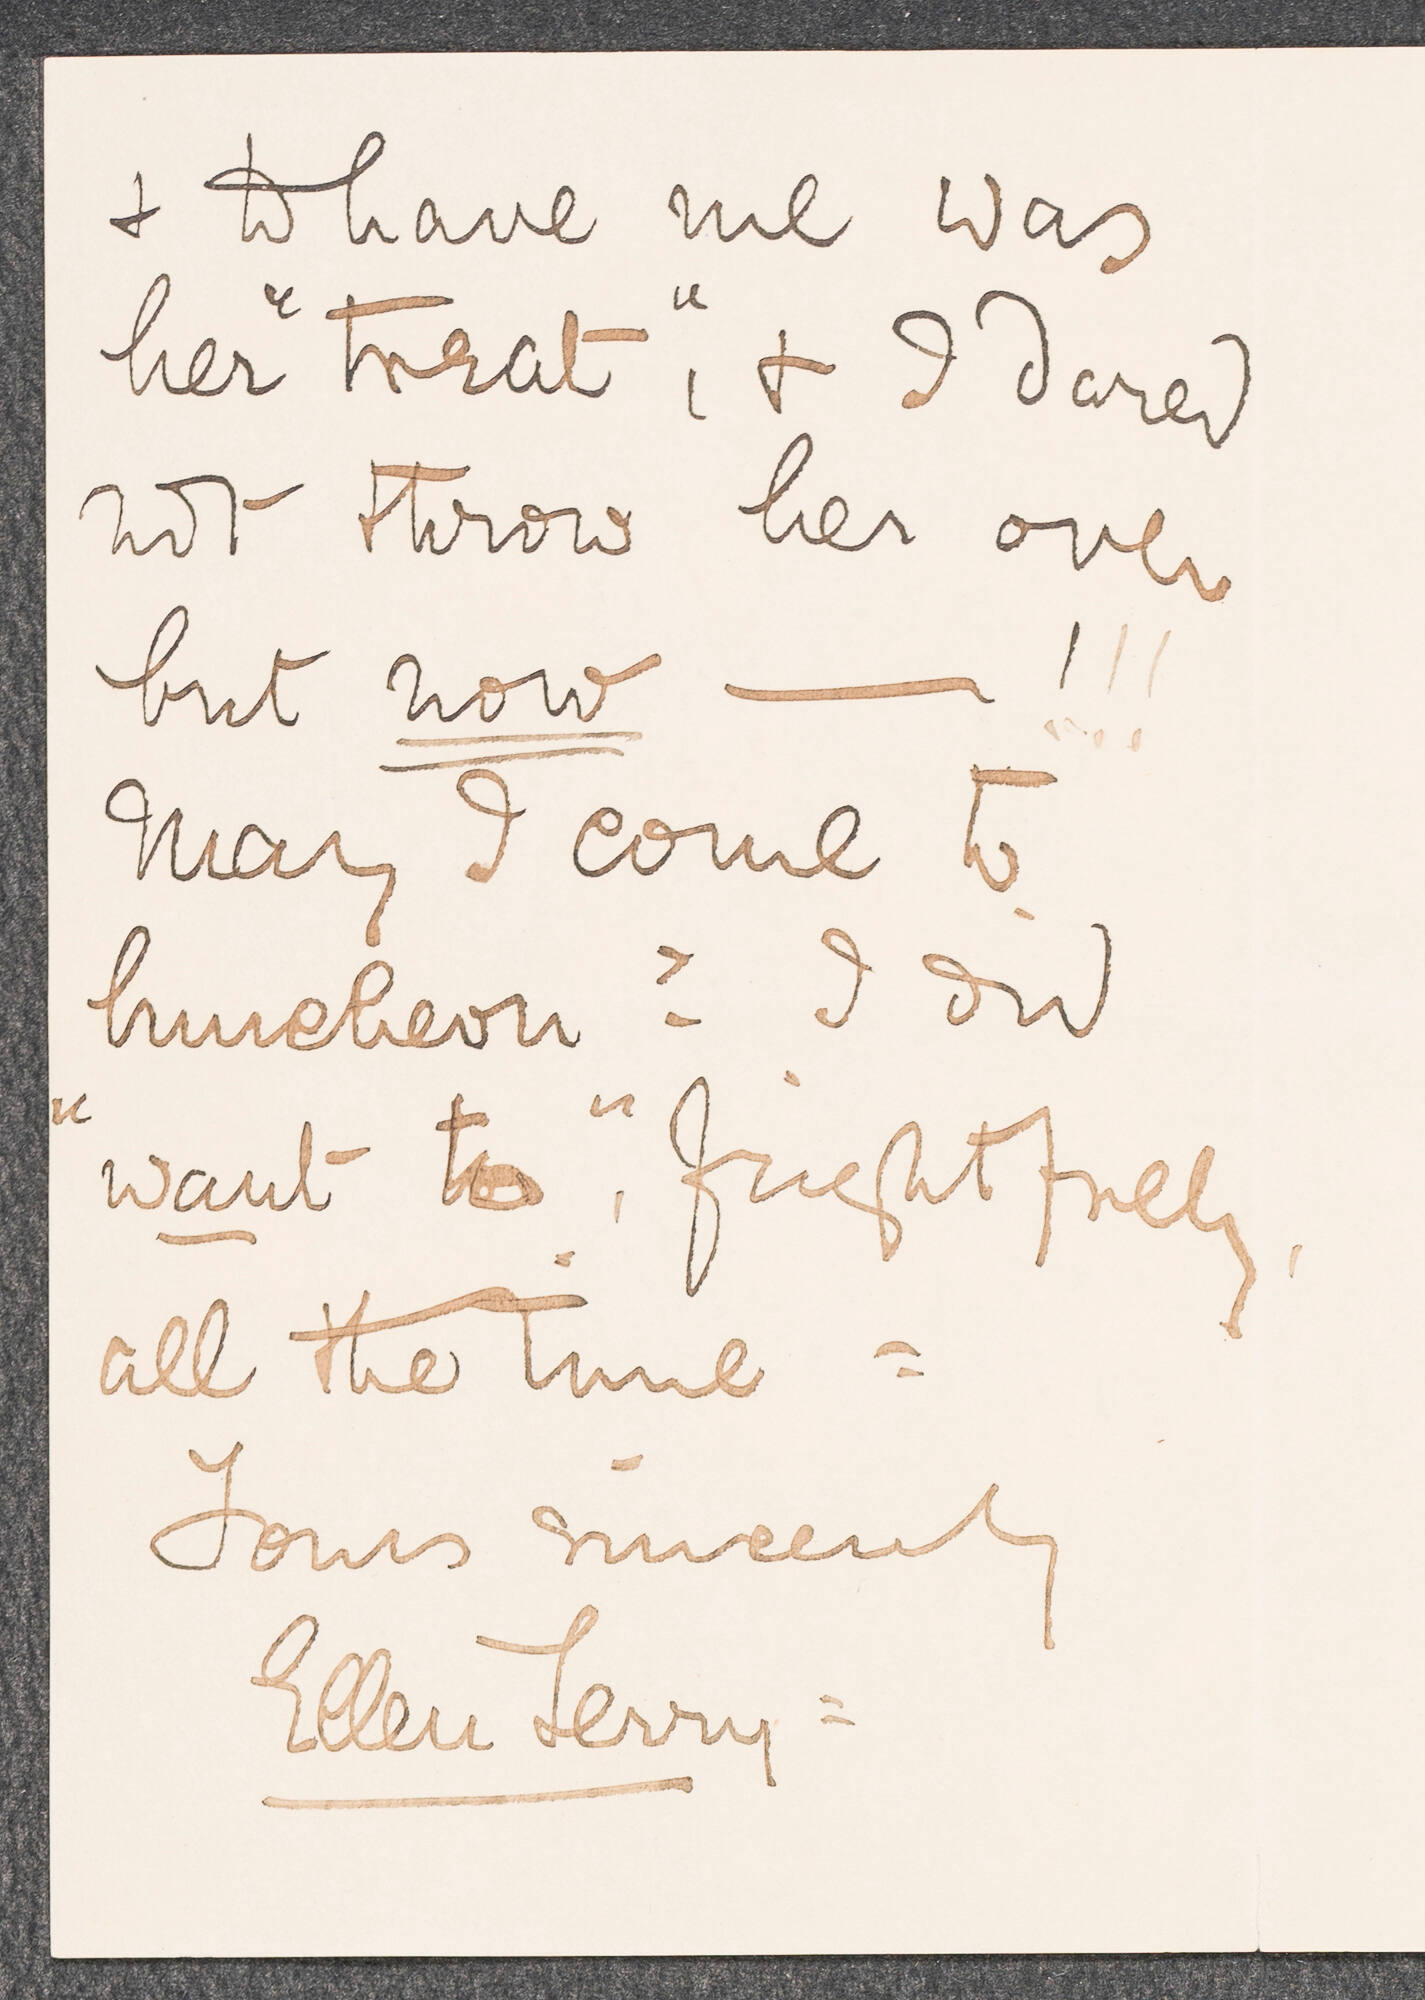 + to have me was
her "treat", + I dared
not throw her over
but now — !!!
May I come to
luncheon? I did
"want to", frightfully,
all the time =
Yours sincerely
Ellen Terry =